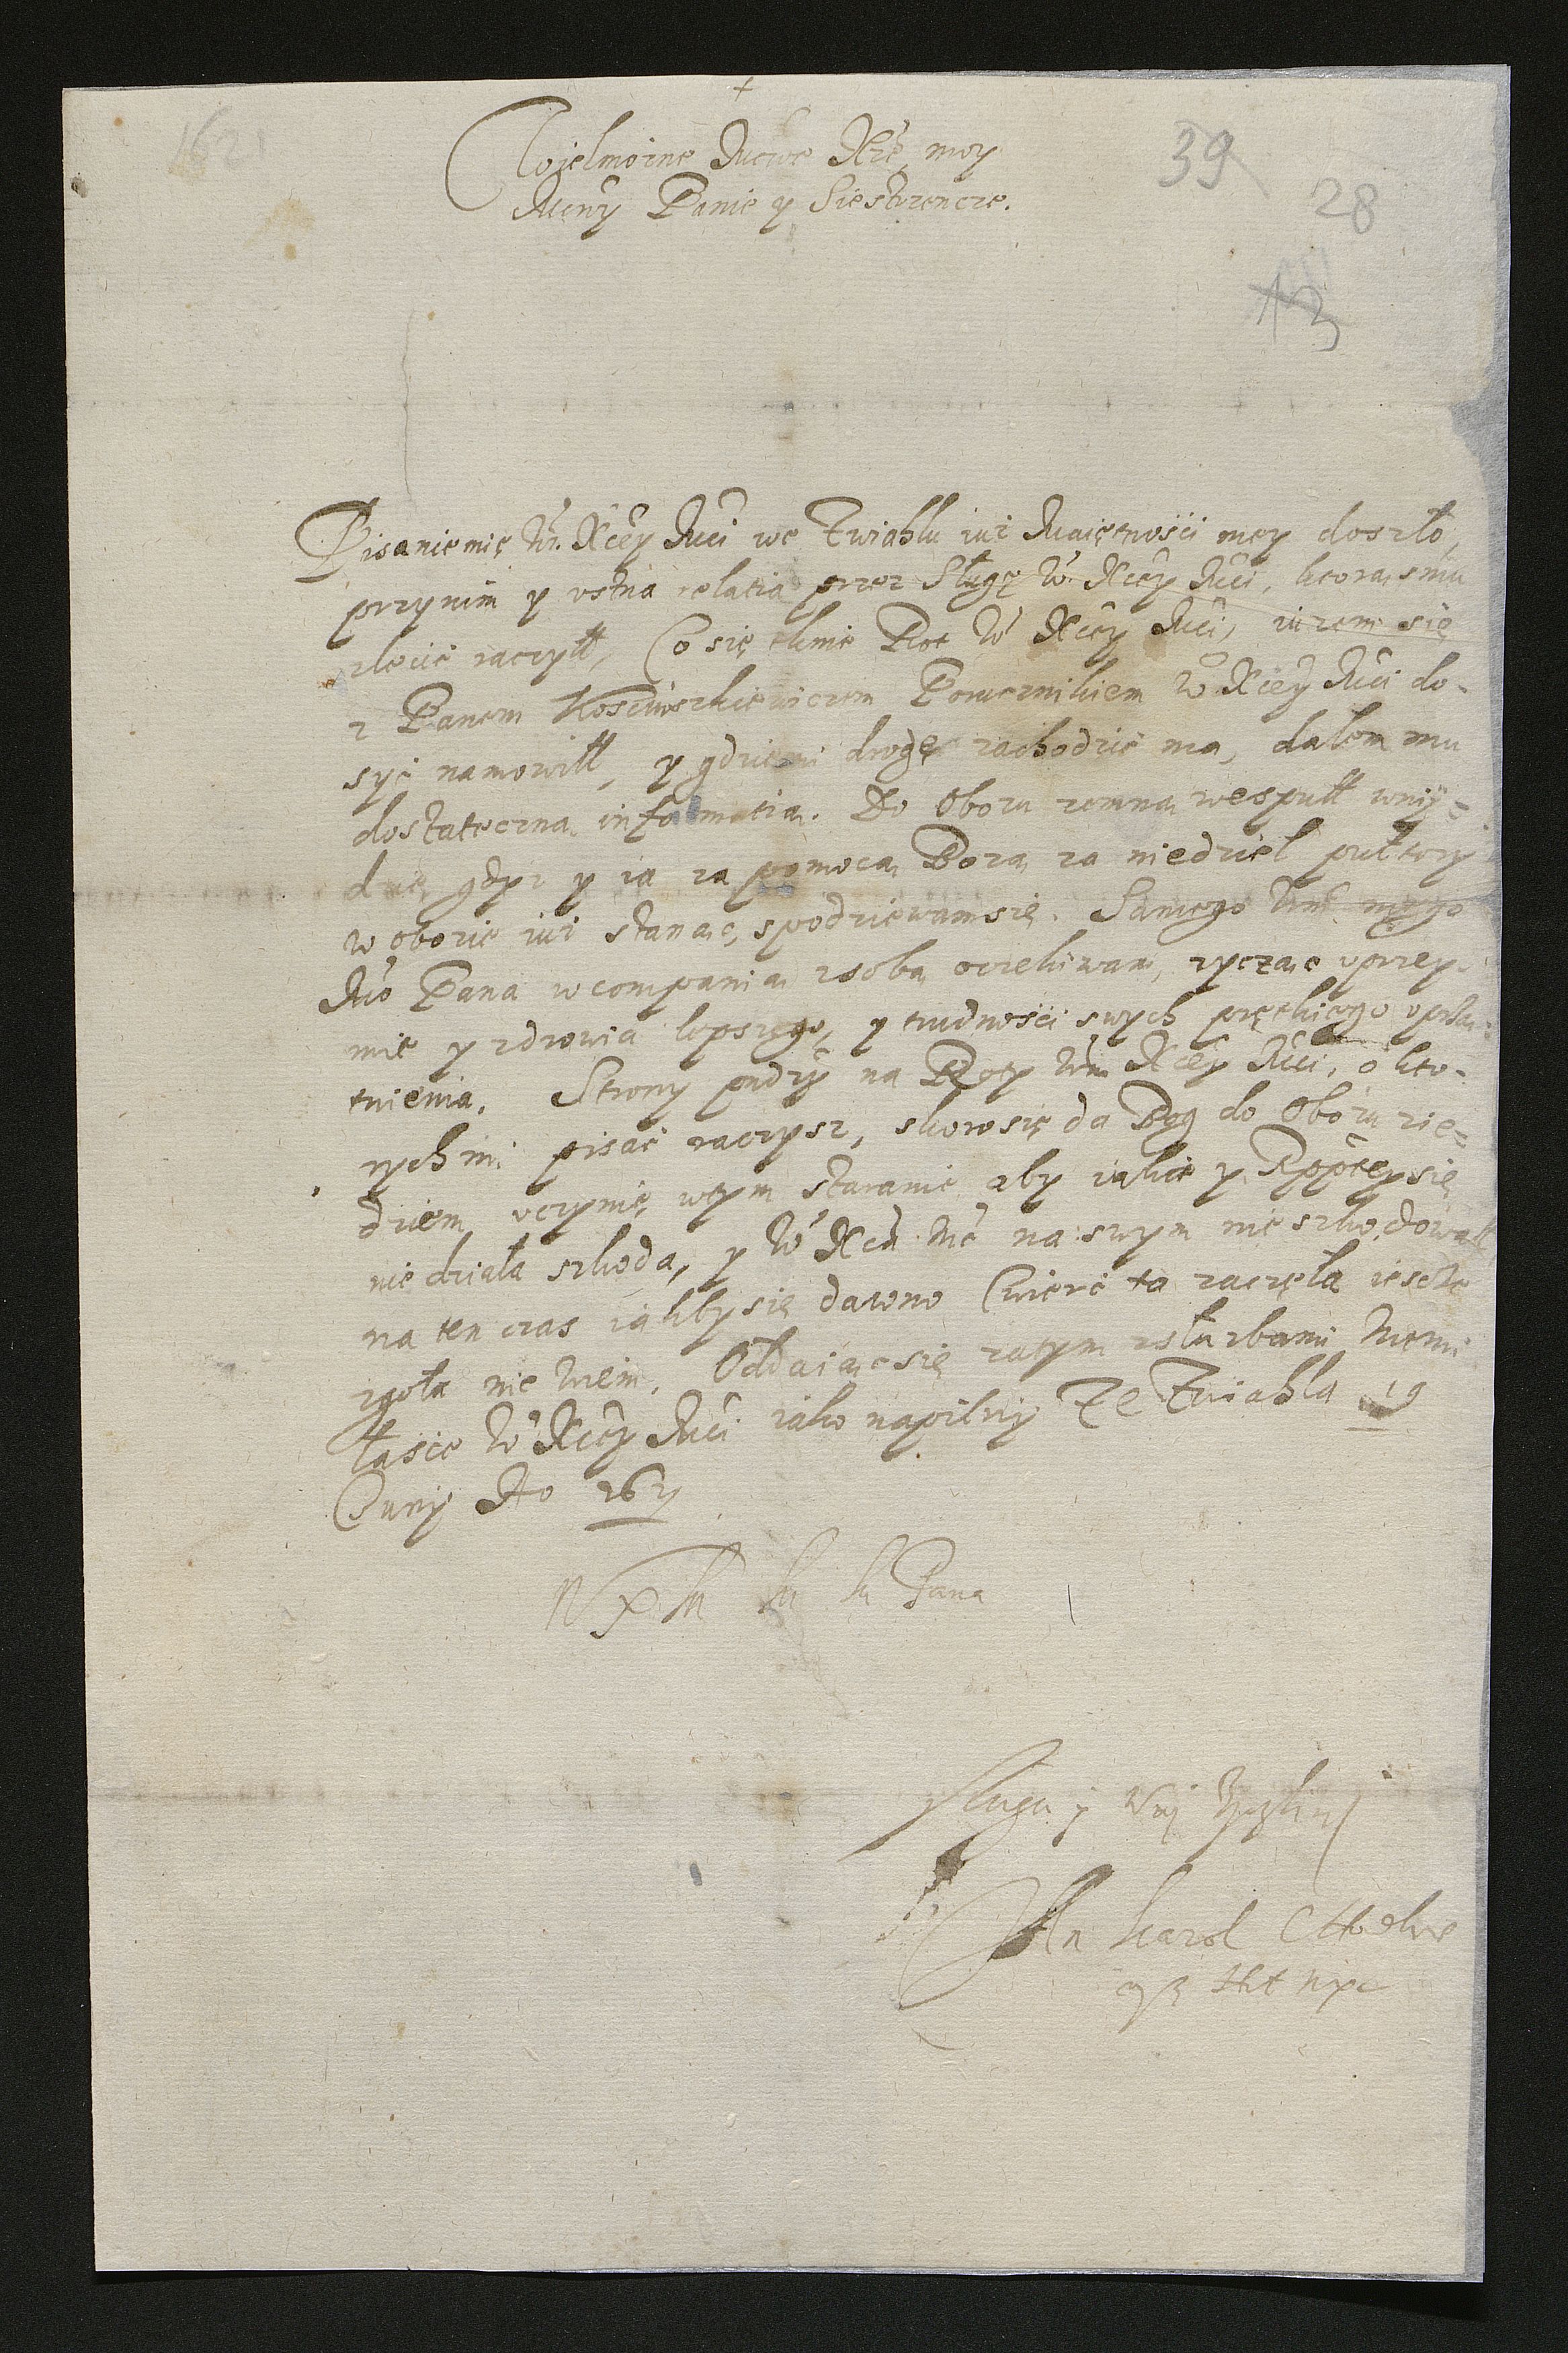 1621
39
28
13
+
Wielmożne Mciwe Xże, moy
Mciwy Panie y Siestrzencze.
Pisanie mię W. Xcey Mci we Zwiahlu iuż Maiętności mey doszło,
przynim y ustna relatia przez Sługę W. Xcey Mci, ktorą smu
zlecic raczyłł, Co się tknie Rot W Xcey Mci, iużem się
z Panem Kosciuszkiewiczem Porucznikiem W Xcey Mci do-
syć namowiłł, y gdzie mi drogę zachodzić ma, dałem mu
dostateczną informatią. Do Obozu zemną wespułł wniy-
dą, gdyz y ia za pomocą Bożą za niedziel pułtory
w obozie iuż stanąc, spodziewam się. Samego Wm mego
Mo Pana w compania zsobą oczekiwam, zycząc uprzey-
mie y zdrowia lepszego, y trudności swych prętkiego uprzą-
tnienia. Strony pndzy na Roty Wm Xcey Mci, o kto-
rych mi pisać raczysz, skoro się da Bog do Obozu zie-
dziem, uczynię wtym staranie aby iakie y Rpptey się
nie działa szkoda, y W Xca Mc na swym nie szkodowałł
na ten czas iakby się dawno Cwierć ta zaczęła iescze
zgoła nie wiem. Oddaiąc się zatym zsłużbami memi
łasce W Xcey Mci iako napilniy Ze Zwiahla 19
Juny Ao 1621
Pana
sługa y Wuj życzliwy
Jan Karol Chodkie